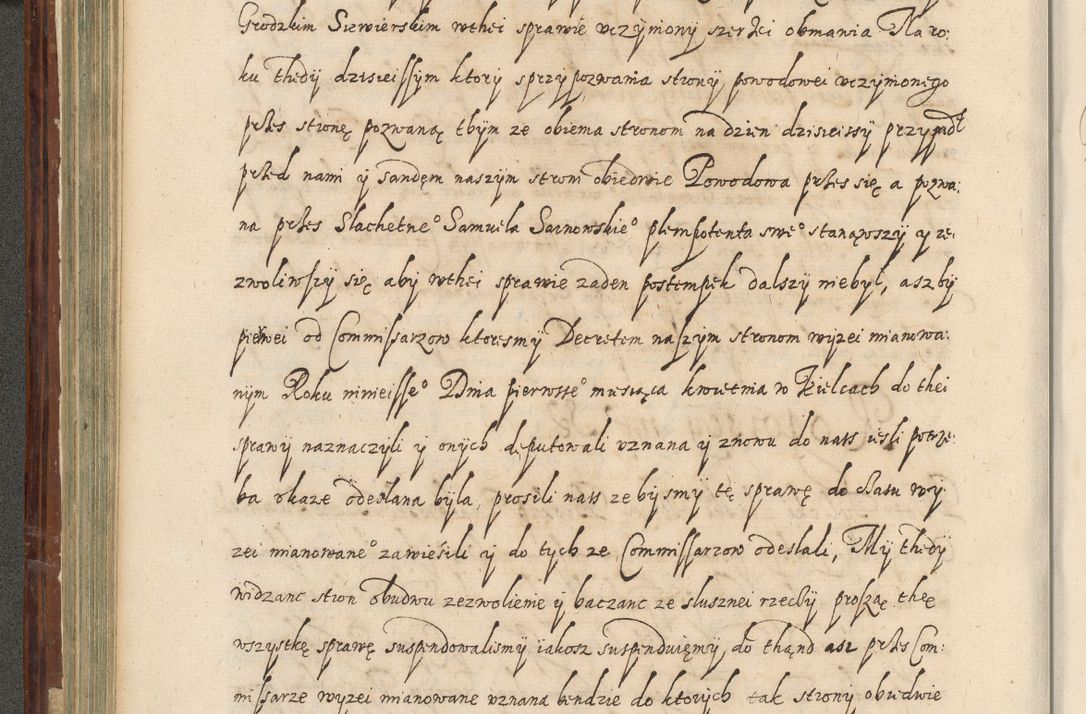 Grodzkim Siewierskim wthei sprawie vczyniony szerzei obmawia Na ro:
ku thedÿ dzisieissym ktorÿ sprzÿpozwania stronÿ powodowei vczynionego
przes stronę pozwaną thÿm ze obiema stronom na dzien dzisieissÿ przÿpadł
przed nami ÿ sandęm naszÿm stron obiedwie Powodowa przes się a pozwa:
na przes Slachetne° Samuela Sarnowskie° plenipotenta swe° stanąwszÿ ÿ ze:
zwoliwszÿ się abÿ wthei sprawie zaden postempek dalszÿ niebÿl, aszbÿ
pierwei od Commissarzow ktoresmÿ Decretem naszÿm stronom wÿzei mianowa:
nÿm Roku ninieisse° Dnia pierwsse° miesiąca kwietnia w Kielcach do thei
sprawÿ naznaczÿli ÿ onÿch deputowali vznana ÿ znowu do nass iesli potrze:
ba okaze odeslana bÿla, prosili nass ze bÿsmÿ tę sprawę do czasu wÿ
zei mianowane° zawiesili ÿ do tÿch ze Commissarzow odeslali, Mÿ thedÿ
widzanc stron obudwu zezwolienie ÿ baczanc ze slusznei rzeczÿ proszą thę
wszÿstkę sprawę suspendowalismÿ iakosz suspenduięmÿ do thąnd asz przes Com:
missarze wÿzei mianowane vznana bendzie do ktorÿch tak stronÿ obiedwie